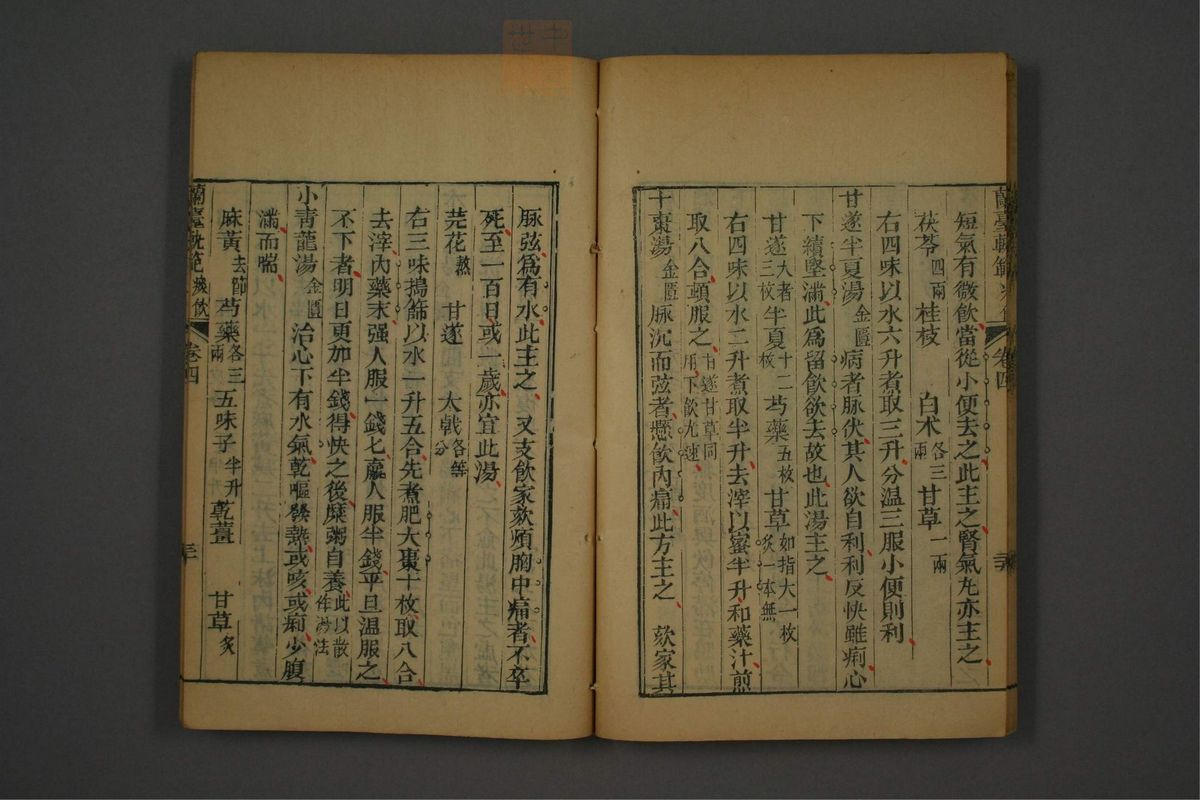 短氣有微飲當從小便去之此主之腎氣丸亦主之
茯苓四兩 桂枝 白朮各三兩 甘草一兩
右四味以水六升煮取三升分温三服小便則利
甘遂半夏湯金匱 病者脉伏其人欲自利利反快雖痢心
下續堅滿此爲留飲欲去故也此湯主之
甘遂大者三枚 半夏十二枚 芍藥五枚 甘草如指大一枚炙一本無
右四味以水二升煮取半升去滓以蜜半升和藥汁煎
取八合頓服之甘遂甘草同用下飲尤速
十棗湯金匱 脉沉而弦者懸飲內痛此方主之 欬家其
脉弦爲有水此主之 又支飲家欬煩胸中痛者不卒
死至一百日或一歲亦宜此湯
芫花熬 甘遂 大戟各等分
右三味搗篩以水一升五合先煮肥大棗十枚取八合
去滓內藥末强人服一錢匕羸人服半錢平旦温服之
不下者明日更加半錢得快之後糜粥自養此以散作湯法
小青龍湯金匱 治心下有水氣乾嘔發熱或咳或痢少腹
滿而喘
麻黃去節 芍藥各三兩 五味子半升 乾薑 甘草炙
蘭臺軌範 痰飲 卷四